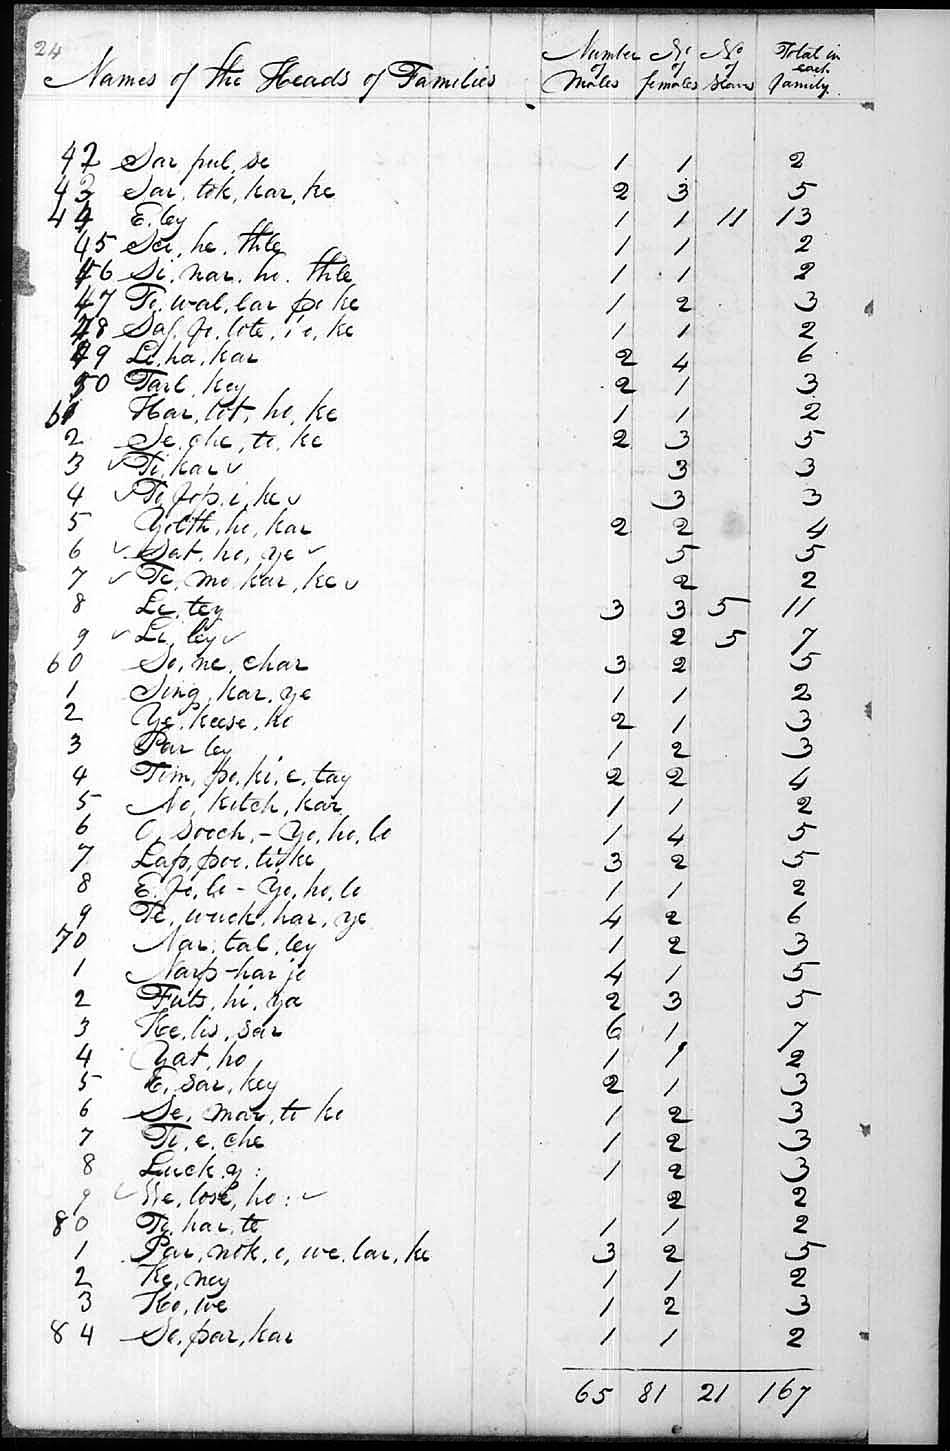 24
Names of the Heads of Families Number of Males No of females No of Slaves Total in each family
42 Sar, pul, se 1 1 2
43 Sar, tok, kar, ke 2 3 5
44 E, ley 1 1 11 13
45 Sa, he, thle 1 1 2
46 Si, nar, ho, thle 1 1 2
47 Te, wal, lar po ke 1 2 3
48 1 1 2
49 Le, ha, kar 2 4 6
50 Tarl, key 2 1 3
51 Har, lot, ho, ke 1 1 2
2 Se, che, te, ke 2 3 5
3 ✓ Ti, kar ✓ 3 3
4 ✓ Te, fop, i, ke ✓ 3 3
5 Yolth, ho, kar 2 2 4
6 ✓ Sat, ho, ye ✓ 5 5
7 ✓ Te, mo, kar, ke ✓ 2 2
8 Le, tey 3 3 5 11
9 ✓ Li, ley ✓ 2 5 7
60 So, ne, char 3 2 5
1 Sing, kar, ye 1 1 2
2 Ye, keese, ho 2 1 3
3 Par ley 1 2 3
4 Tim, po, ki, e, tay 2 2 4
5 No, kitch, kar 1 1 2
6 O, sooch, - Yo, ho, lo 1 4 5
7 Lap, poe, 3 2 5
8 E, fo, lo - Yo, ho, lo 1 1 2
9 Te, wuck, har, ye 4 2 6
70 Nar, tal, ley 1 2 3
1 Narp-har jo 4 1 5
2 Futs, hi, ya 2 3 5
3 Ke, lis, sar 6 1 7
4 Yat, ho 1 1 2
5 E, sar, key 2 1 3
6 Se, mar, te ke 1 2 3
7 Ti, e, che 1 2 3
8 Luck, y: 1 2 3
9 ✓ We, lose, ho: ✓ 2 2
80 Ty, har, te 1 1 2
1 Par, nok, e, we, lar, ke 3 2 5
2 Ke, ney 1 1 2
3 Ko, we 1 2 3
84 Se, par, kar 1 1 2
65 81 21 167